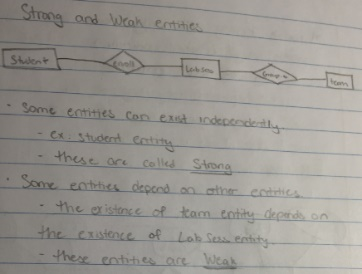 Strong and Weak entities
Student enroll Lab Sess Team
· Some entities can exist independently
- ex. student entity
- these are called Strong
· Some entities depend on other entities
- the existence of team entity depends on
the existence of Lab Sess entity
- these entities are Weak